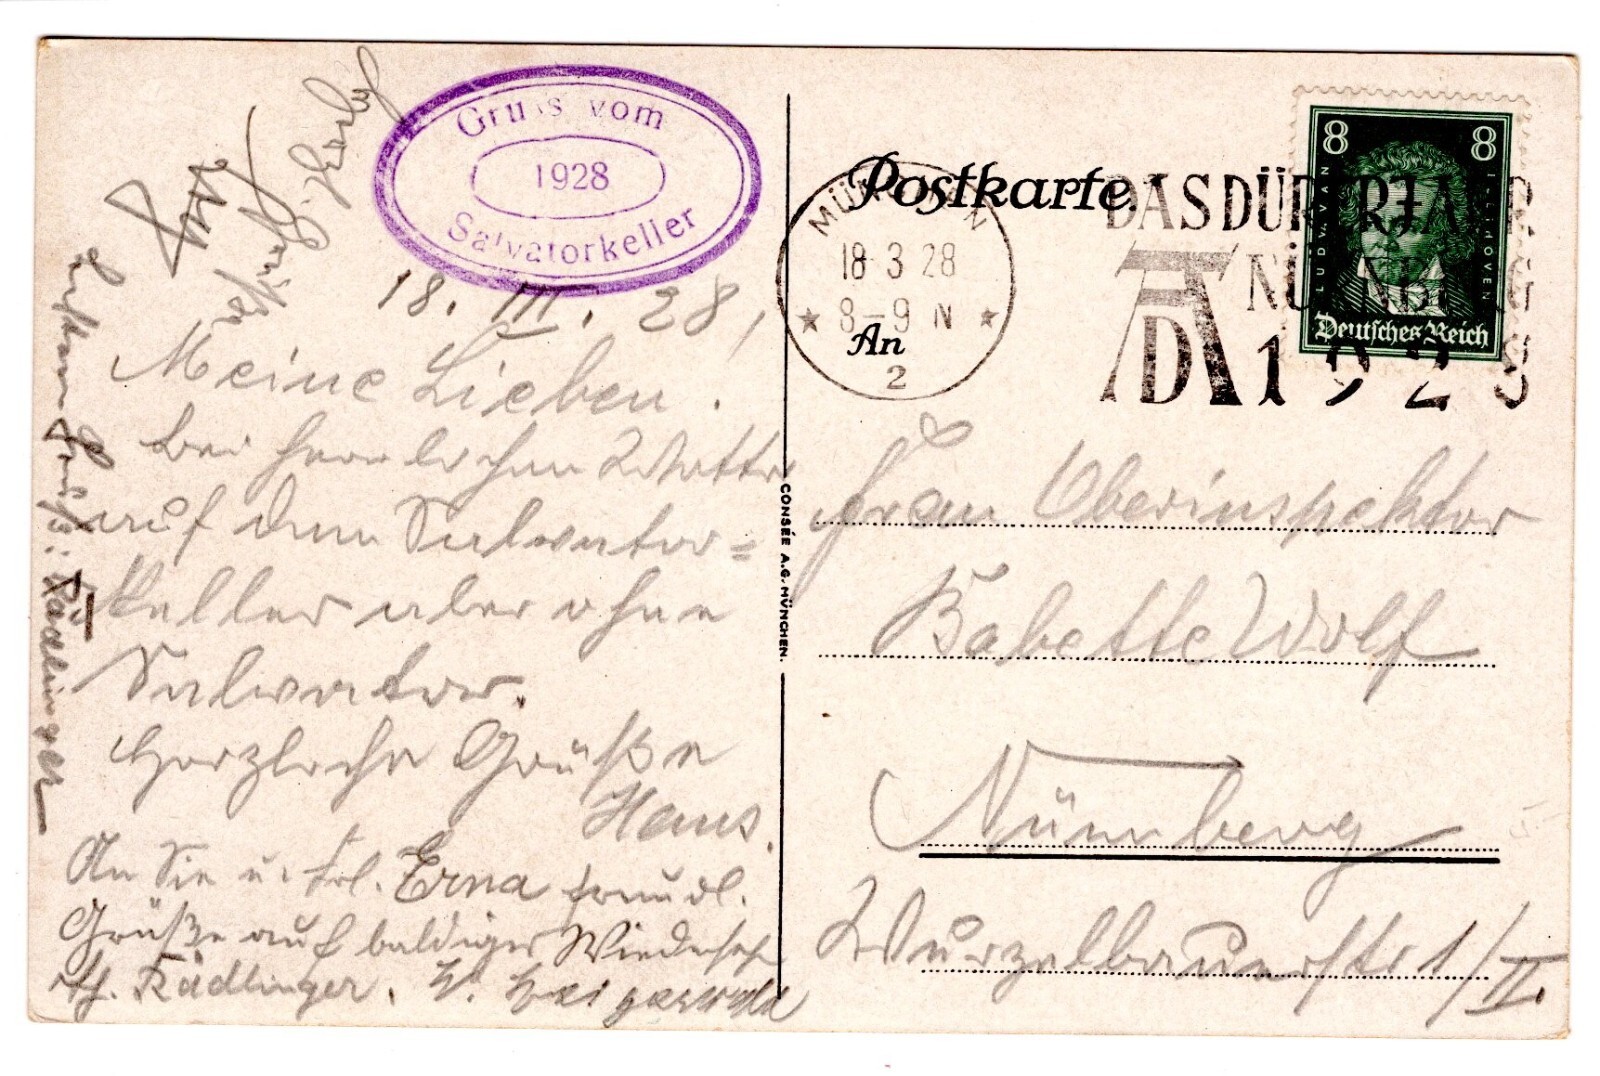 Gruss vom
1928
Salvatorkeller
18. III. 28.
Meine Lieben!
Bei herrlichem Wetter
auf dem Salvator=
keller aber ohne
Salvator.
Herzliche Grüße
Hans.
An Sie u. Frl. Erna freundl.
Grüße auf baldiges Wiedersehn
Rädlinger. H.
Gruß: Rädlinger
Grüße
CONSÉE A.G. MÜNCHEN.
Postkarte
MÜNCHEN
18 3 28
8-9 N
2
DAS DÜRERJAHR
NÜRNBERG
AD 1928
8 8
LUDW. VAN
BEETHOVEN
Deutsches Reich
An
Frau Oberinspektor
Babette Wolf
Nürnberg
Wurzelbauerstr 1/II.